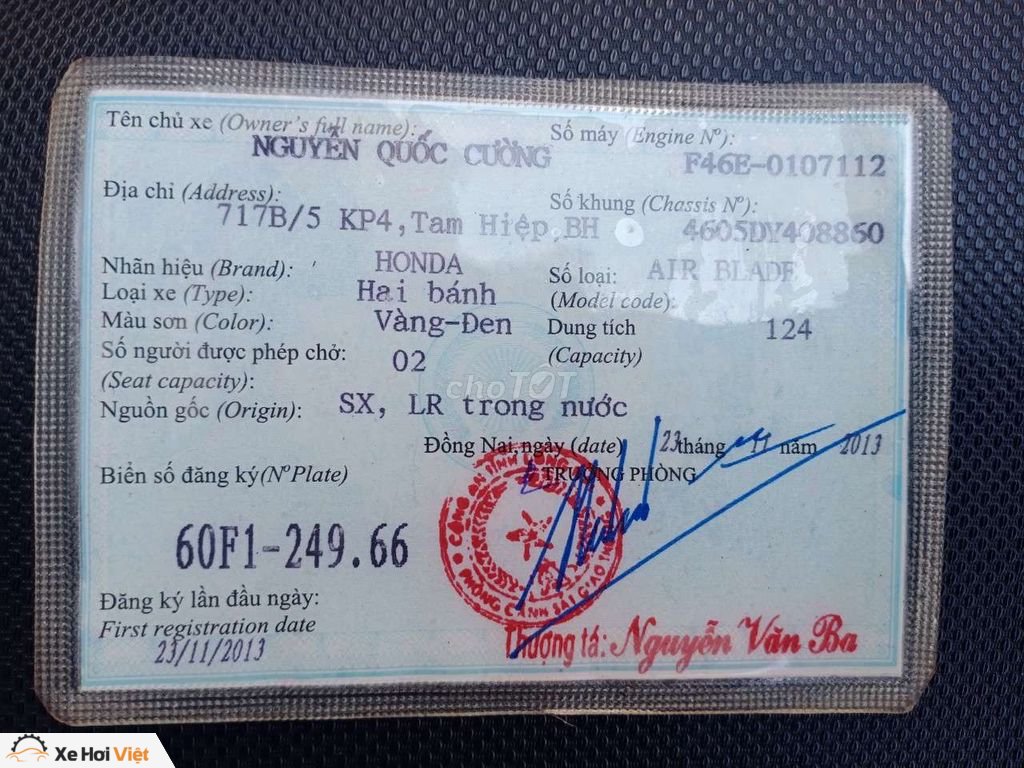 Tên chủ xe (Owner's full name):
NGUYỄN QUỐC CƯỜNG
Số máy (Engine Nº):
F46E-0107112
Địa chỉ (Address):
717B/5 KP4,Tam Hiệp,BH
Số khung (Chassis Nº):
4605DY408860
Nhãn hiệu (Brand): HONDA
Số loại: AIR BLADE
(Model code):
Loại xe (Type): Hai bánh
Màu sơn (Color): Vàng-Đen
Dung tích 124
(Capacity)
Số người được phép chở: 02
(Seat capacity):
Nguồn gốc (Origin): SX, LR trong nước
choTỐT
Đồng Nai,ngày (date) 23 tháng 11 năm 2013
TRƯỞNG PHÒNG
Biển số đăng ký(Nº Plate)
60F1-249.66
CÔNG AN TỈNH ĐỒNG
PHÒNG CẢNH SÁT GIAO THÔNG
Đăng ký lần đầu ngày:
First registration date
23/11/2013
Thượng tá: Nguyễn Văn Ba
Xe Hơi Việt